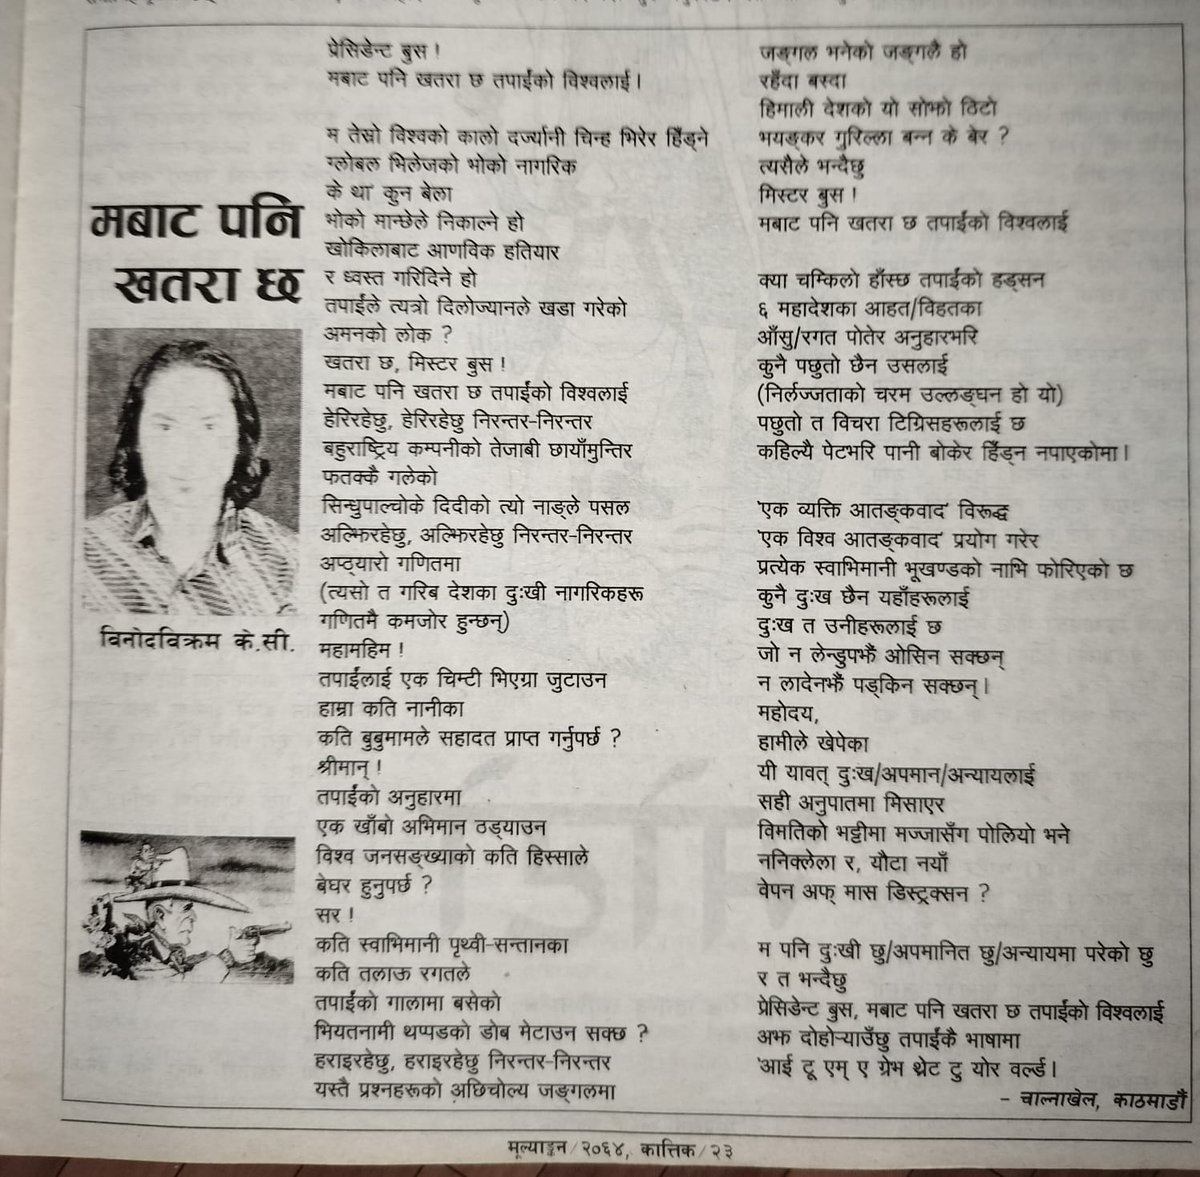 मबाट पनि
खतरा छ
विनोदविक्रम के.सी.
प्रेसिडेन्ट बुस !
मबाट पनि खतरा छ तपाईंको विश्वलाई ।
म तेस्रो विश्वको कालो दर्ज्यानी चिन्ह भिरेर हिँड्ने
ग्लोबल भिलेजको भोको नागरिक
के था' कुन बेला
भोको मान्छेले निकाल्ने हो
खोकिलाबाट आणविक हतियार
र ध्वस्त गरिदिने हो
तपाईंले त्यत्रो दिलोज्यानले खडा गरेको
अमनको लोक ?
खतरा छ, मिस्टर बुस !
मबाट पनि खतरा छ तपाईंको विश्वलाई
हेरिरहेछु, हेरिरहेछु निरन्तर-निरन्तर
बहुराष्ट्रिय कम्पनीको तेजाबी छायाँमुन्तिर
फतक्कै गलेको
सिन्धुपाल्चोके दिदीको त्यो नाङ्ले पसल
अल्झिरहेछु, अल्झिरहेछु निरन्तर-निरन्तर
अप्ठ्यारो गणितमा
(त्यसो त गरिब देशका दुःखी नागरिकहरू
गणितमै कमजोर हुन्छन्)
महामहिम !
तपाईंलाई एक चिम्टी भिएग्रा जुटाउन
हाम्रा कति नानीका
कति बुबुमामले सहादत प्राप्त गर्नुपर्छ ?
श्रीमान् !
तपाईंको अनुहारमा
एक खाँबो अभिमान ठड्याउन
विश्व जनसङ्ख्याको कति हिस्साले
बेघर हुनुपर्छ ?
सर !
कति स्वाभिमानी पृथ्वी-सन्तानका
कति तलाऊ रगतले
तपाईंको गालामा बसेको
भियतनामी थप्पडको डोब मेटाउन सक्छ ?
हराइरहेछु, हराइरहेछु निरन्तर-निरन्तर
यस्तै प्रश्नहरूको अछिचोल्य जङ्गलमा
जङ्गल भनेको जङ्गलै हो
रहँदा बस्दा
हिमाली देशको यो सोझो ठिटो
भयङ्कर गुरिल्ला बन्न के बेर ?
त्यसैले भन्दैछु
मिस्टर बुस !
मबाट पनि खतरा छ तपाईंको विश्वलाई
क्या चम्किलो हाँस्छ तपाईंको हड्सन
६ महादेशका आहत/विहतका
आँसु/रगत पोतेर अनुहारभरि
कुनै पछुतो छैन उसलाई
(निर्लज्जताको चरम उल्लङ्घन हो यो)
पछुतो त विचरा टिग्रिसहरूलाई छ
कहिल्यै पेटभरि पानी बोकेर हिँड्न नपाएकोमा ।
'एक व्यक्ति आतङ्कवाद' विरूद्ध
'एक विश्व आतङ्कवाद' प्रयोग गरेर
प्रत्येक स्वाभिमानी भूखण्डको नाभि फोरिएको छ
कुनै दुःख छैन यहाँहरूलाई
दुःख त उनीहरूलाई छ
जो न लेन्डुपझैँ ओसिन सक्छन्
न लादेनझैँ पड्किन सक्छन् ।
महोदय,
हामीले खेपेका
यी यावत् दुःख/अपमान/अन्यायलाई
सही अनुपातमा मिसाएर
विमतिको भट्टीमा मज्जासँग पोलियो भने
ननिक्लेला र, यौटा नयाँ
वेपन अफ् मास डिस्ट्रक्सन ?
म पनि दुःखी छु/अपमानित छु/अन्यायमा परेको छु
र त भन्दैछु
प्रेसिडेन्ट बुस, मबाट पनि खतरा छ तपाईंको विश्वलाई
अझ दोहोऱ्याउँछु तपाईंकै भाषामा
'आई टू एम् ए ग्रेभ थ्रेट टु योर वर्ल्ड ।
- चाल्नाखेल, काठमाडौँ
मूल्याङ्कन/२०६४, कात्तिक/२३